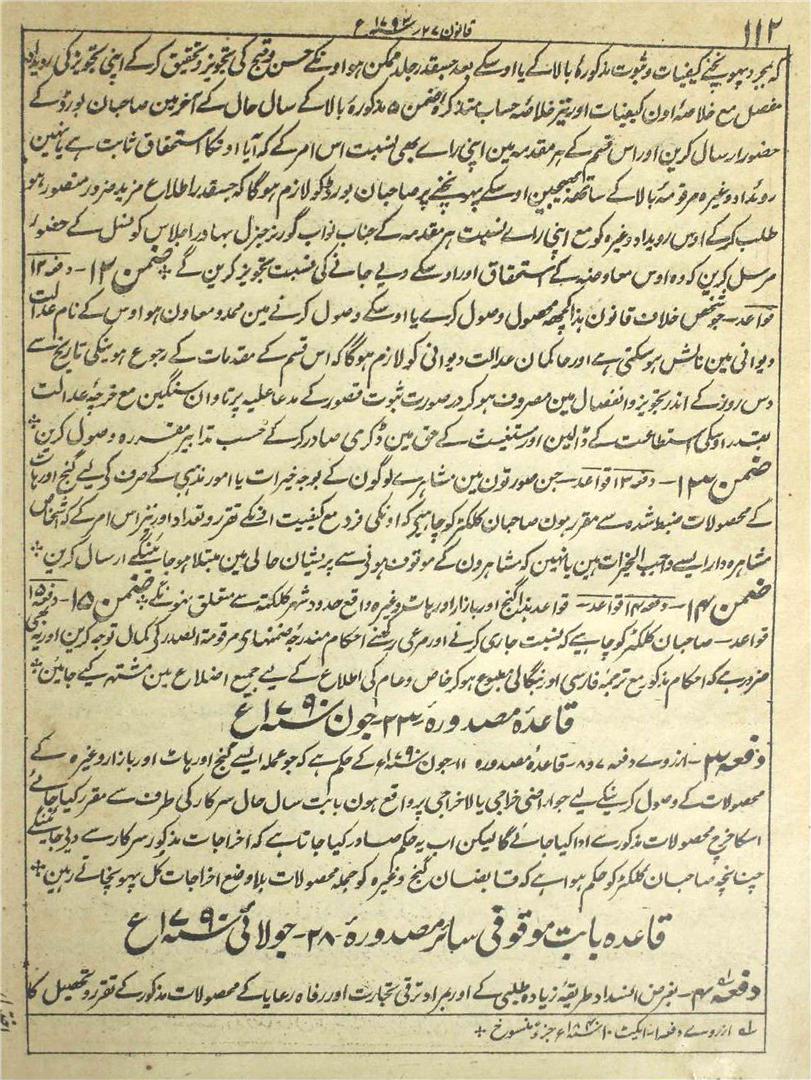 ۱۱۲
قانون ۲۷ سنہ ۱۷۹۳ع
کہ بمجرد پہونچنے کیفیات و ثبوت مذکورۂ بالا کے یا اوسکے بعد جسقدر جلد ممکن ہو اونکے حسن و قبح کی تجویز و تحقیق کرکے اپنی تجویز کی رویداد
مفصل مع خلاصۂ اون کیفیات اور نیز خلاصہ حساب متذکرہ ضمن ۵ مذکورۂ بالا کے سال حال کے آخر مین صاحبان بورڈ کے
حضور ارسال کرین اور اس قسم کے ہر مقدمہ مین اپنی راے بھی نسبت اس امر کے کہ آیا اونکا استحقاق ثابت ہے یا نہین
رویداد وغیرہ مرقومۂ بالا کے ساتھہ بھیجین اوسکے پہونچنے پر صاحبان بورڈ کو لازم ہوگا کہ جسقدر اطلاع مزید ضرور متصور ہو
طلب کرکے اوس رویداد وغیرہ کو مع اپنی راے نسبت ہر مقدمہ کے جناب نواب گورنر جنرل بہادر اجلاس کونسل کے حضور
مرسل کرین کہ وہ اوس معاوضہ کے استحقاق اور اوسکے دیے جانے کی نسبت تجویز کرین گے * ضمن ۱۲ - دفعہ ۱۲
قواعد - جو شخص خلاف قانون ہذا کچھہ محصول وصول کرے یا اوسکے وصول کرنے مین ممد و معاون ہو اوس کے نام عدالت
دیوانی مین نالش ہوسکتی ہے اور حاکمان عدالت دیوانی کو لازم ہوگا کہ اس قسم کے مقدمات کے رجوع ہونیکی تاریخ سے
دس روز کے اندر تجویز و انفصال مین مصروف ہوکر در صورت ثبوت قصور کے مدعا علیہ پر تاوان سنگین مع خرچۂ عدالت
بقدر اوسکی استطاعت کے ڈالین اور مستغیث کے حق مین ڈکری صادر کرکے حسب تدابیر مقررہ وصول کرین *
ضمن ۱۳ - دفعہ ۱۳ قواعد - جن صورتون مین مشاہرے لوگون کے بوجہ خیرات یا امور مذہبی کے صرف کے لیے گنج اور ہاٹ
کے محصولات ضبط شدہ سے مقرر ہون صاحبان کلکٹر کو چاہیے کہ اونکی فرد مع کیفیت اونکے تقرر و تعداد اور نیز اس امر کے کہ اشخاص
مشاہرہ دار ایسے واجب الخیرات ہین یا نہین کہ مشاہرون کے موقوف ہونے سے پریشان حالی مین مبتلا ہوجائینگے ارسال کرین *
ضمن ۱۴ - دفعہ ۱۴ قواعد - قواعد ہذا گنج اور بازار اور ہاٹ وغیرہ واقع حدود شہر کلکتہ سے متعلق نہونگے * ضمن ۱۵ - دفعہ ۱۵
قواعد - صاحبان کلکٹر کو چاہیے کہ نسبت جاری کرنے اور مرعی رکھنے احکام مندرجہ ضمنہای مرقومۃ الصدر کی کمال توجہ کرین اور یہ بھی
ضرور ہے کہ احکام مذکور مع ترجمہ فارسی اور بنگالی مطبوع ہوکر خاص و عام کی اطلاع کے لیے جمیع اضلاع مین مشتہر کیے جاوین *
قاعدہ مصدورہ ۲۳ - جون سنہ ۱۷۹۰ع
دفعہ ۳ - ازروے دفعہ ۷ و ۸ - قاعدۂ مصدورہ ۱۱ - جون سنہ ۱۷۹۰ع کے حکم ہے کہ جو عملہ ایسے گنج اور ہاٹ اور بازار وغیرہ کے
محصولات کے وصول کرنیکے لیے جو اراضی خراجی یا لاخراجی پر واقع ہون بابت سال حال سرکار کی طرف سے مقرر کیا جائے
اسکا خرچ محصولات مذکور سے ادا کیا جائے گا لیکن اب یہ حکم صادر کیا جاتا ہے کہ اخراجات مذکور سرکار سے دیے جائینگے
چنانچہ صاحبان کلکٹر کو حکم ہوا ہے کہ قابضان گنج وغیرہ کو جملہ محصولات بلا وضع اخراجات کل پہونچاتے رہین *
قاعدہ بابت موقوفی سائر مصدورہ ۲۸ - جولائی سنہ ۱۷۹۰ع
دفعہ ۴ - بغرض انسداد طریقۂ زیادہ طلبی کے اور بمراد ترقی تجارت اور رفاہ رعایا کے محصولات مذکور کے تقرر و تحصیل کا
لہ ازروے دفعہ ۱ - ایکٹ سنہ ع جزوً منسوخ *